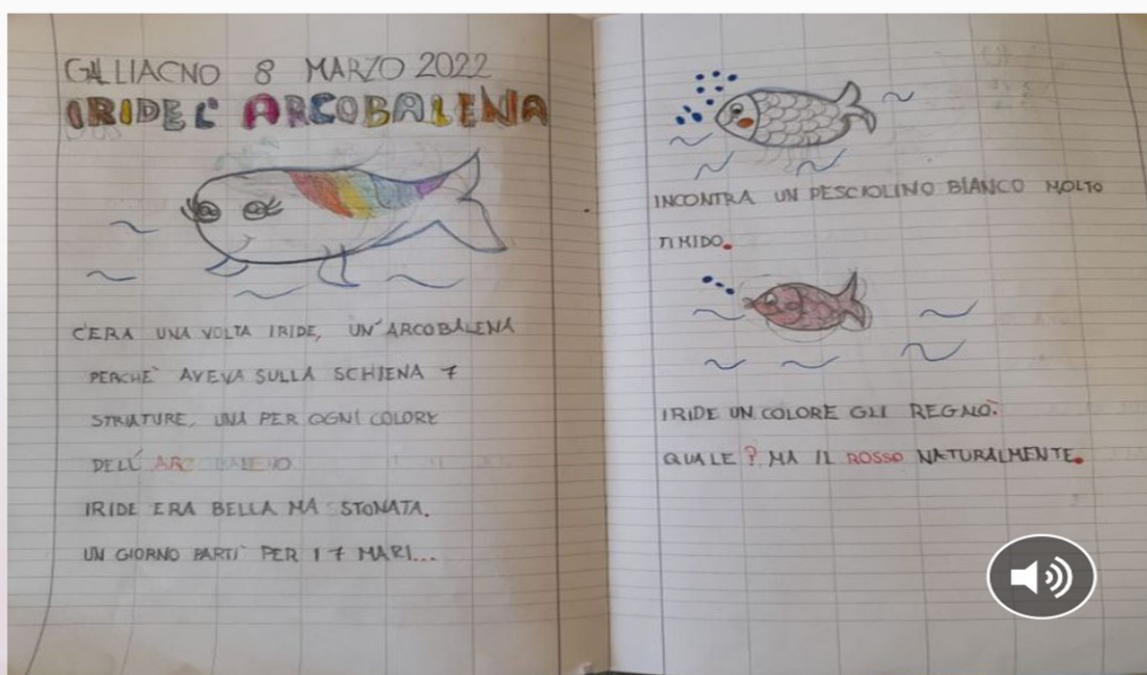 GALLIACNO 8 MARZO 2022
IRIDE L' ARCOBALENA
C'ERA UNA VOLTA IRIDE, UN'ARCOBALENA
PERCHE' AVEVA SULLA SCHIENA 7
STRIATURE, UNA PER OGNI COLORE
DELL'ARCOBALENO
IRIDE ERA BELLA MA STONATA.
UN GIORNO PARTI' PER I 7 MARI...
INCONTRA UN PESCIOLINO BIANCO MOLTO
TIMIDO.
IRIDE UN COLORE GLI REGALÒ.
QUALE? MA IL ROSSO NATURALMENTE.